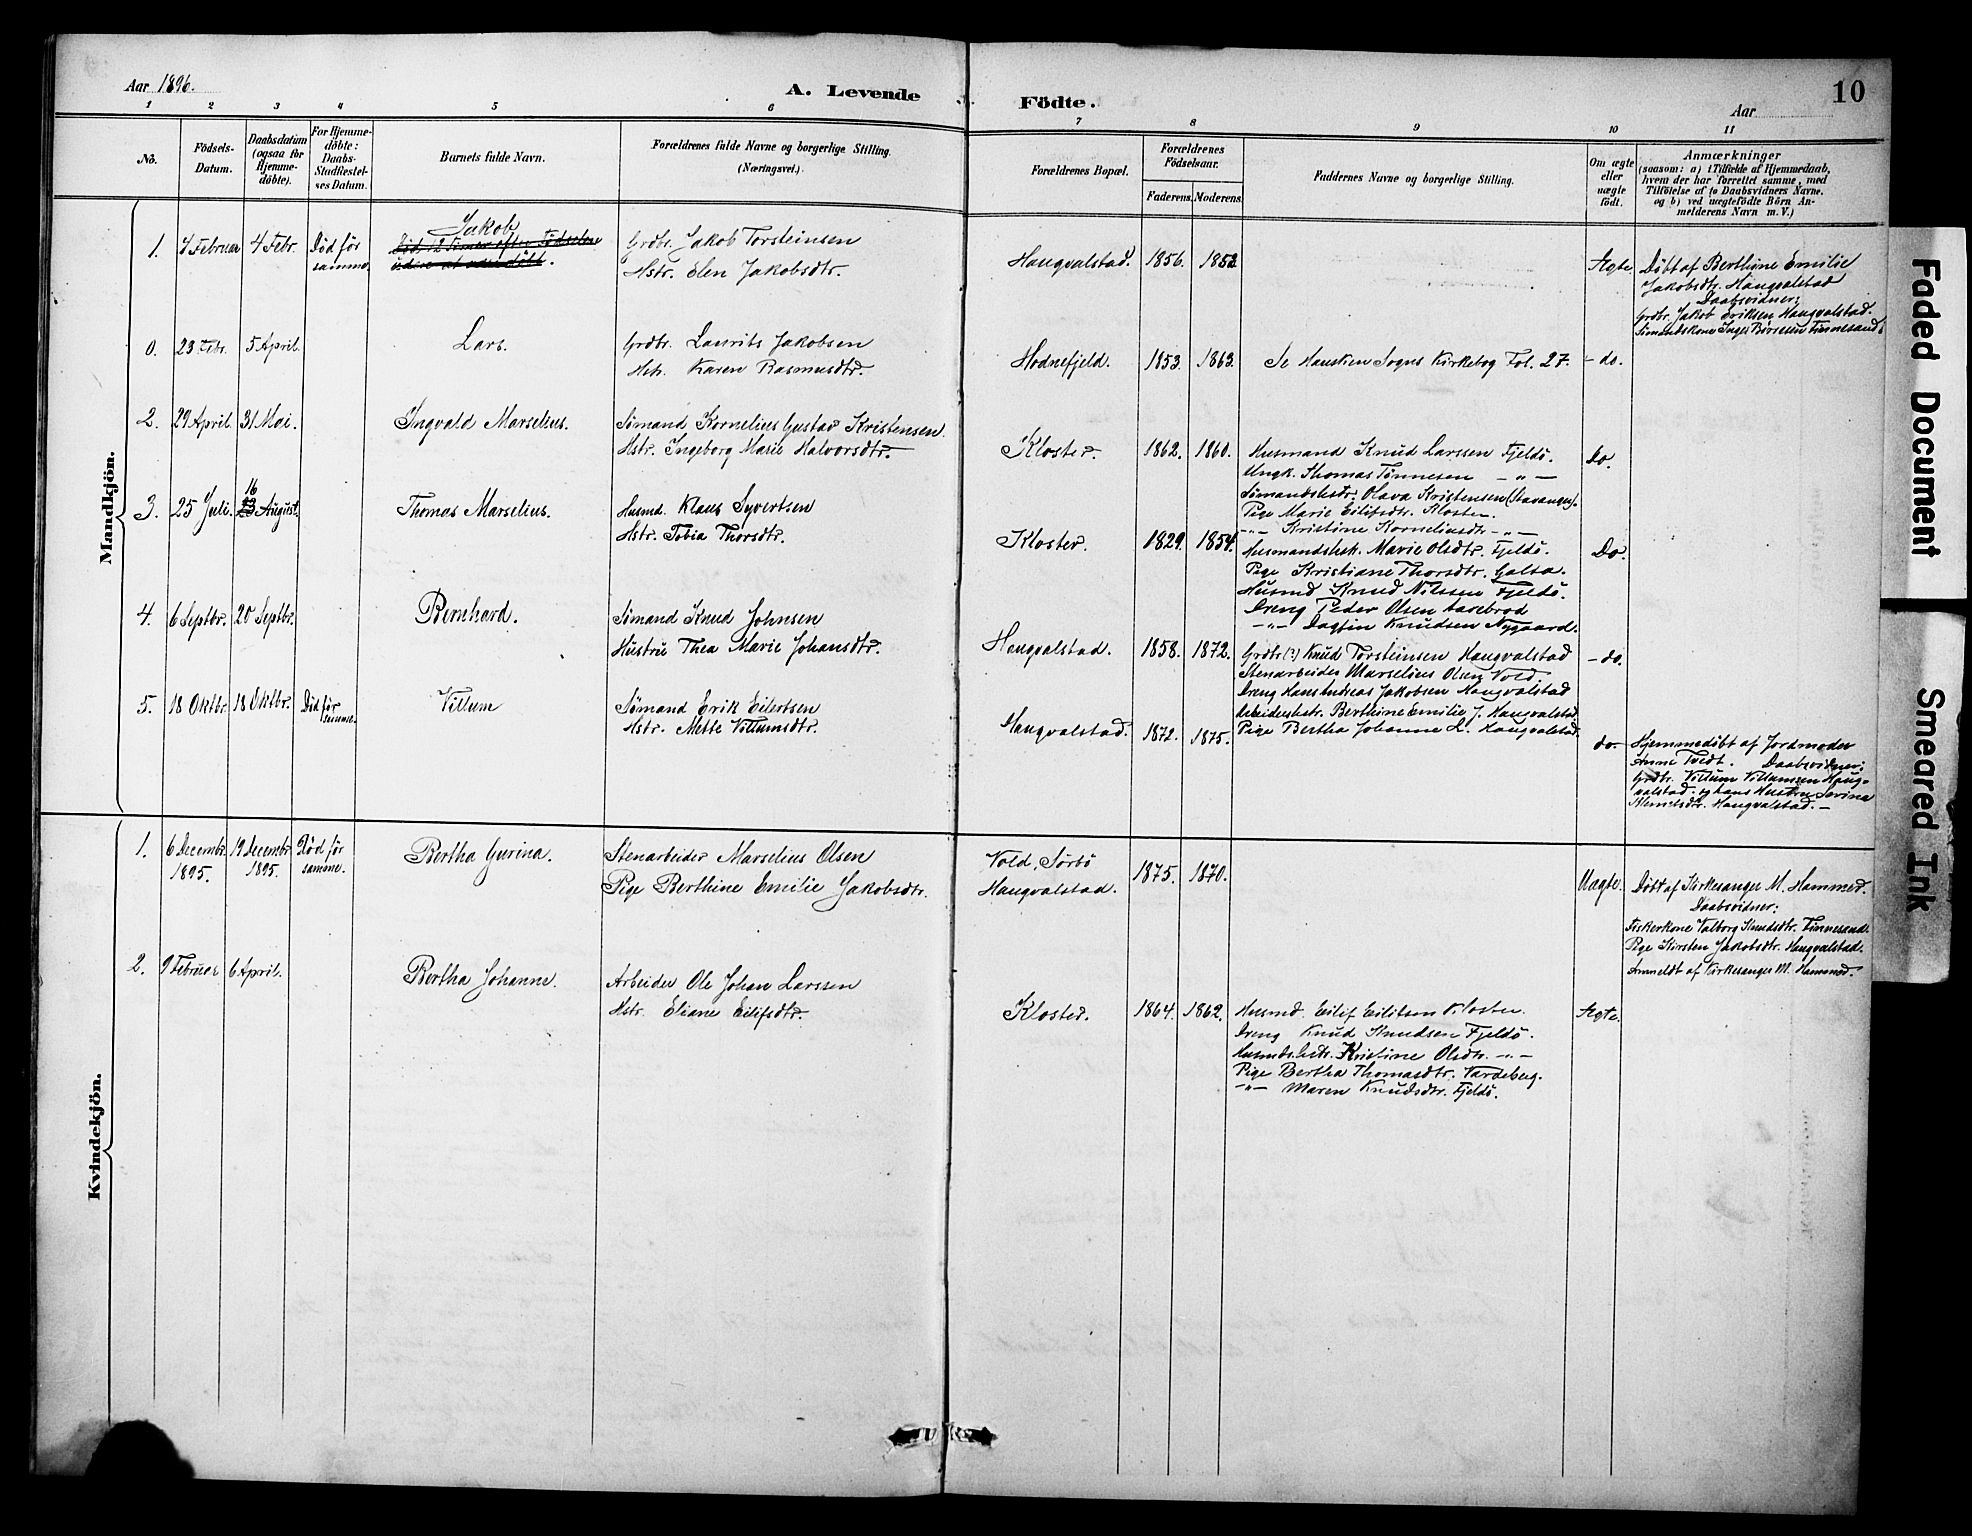 Aar 1896.
A. Levende
Födte.
Aar
10
1 2 3 4 5 6 7 8 9 10 11
No.
Födsels-
Datum.
Daabsdatum
(ogsaa for
Hjemme-
döbte).
For Hjemme-
döbte:
Daabs-
Stadfæstel-
ses Datum.
Barnets fulde Navn.
Forældrenes fulde Navne og borgerlige Stilling.
(Næringsvei.)
Forældrenes Bopæl.
Forældrenes
Födselsaar.
Faderens.
Moderens.
Faddernes Navne og borgerlige Stilling.
Om ægte
eller
uægte
födt.
Anmærkninger
(saasom: a) i Tilfælde af Hjemmedaab,
hvem der har forrettet samme, med
Tilföielse af to Daabsvidners Navne,
og b) ved uægtefödte Börn An-
melderens Navn m. V.)
Mandkjön.
1. 4 Februar 4 Febr. Död för
samme.
Jakob
Död 12 Timer efter Födselen
uden at være döbt.
Grdbr. Jakob Torsteinsen
Hstr. Elen Jakobsdtr.
Haugvalstad. 1856. 1852
Ægte
Döbt af Berthine Emilie
Jakobsdtr. Haugvalstad
Daabsvidner:
Grdbr. Jakob Eriksen Haugvalstad.
Sömandskone Inger Börresen Finnesand.
0. 23 Febr. 5 April.
Lars.
Grdbr. Laurits Jakobsen
Hstr. Karen Rasmusdtr.
Hodnefjeld. 1853. 1863.
Se Hausken Sogns Kirkebog Fol. 27.
- do.
2. 29 April. 31 Mai.
Ingvald Marselius.
Sömand Kornelius Gustav Kristensen.
Hstr. Ingeborg Marie Halvorsdtr.
Kloster. 1862. 1860.
Husmand Knud Larssen Fjeldö.
Ungk. Thomas Tönnesen — „ —
Sömandshstr. Olava Kristensen (Stavanger).
Pige Marie Eilifsdtr. Kloster.
— „ — Kristine Korneliusdtr — „ —
Do.
3. 25 Juli. 16
23 August.
Thomas Marselius.
Husmd. Klaus Syvertsen
Hstr. Tobia Thorsdtr.
Kloster. 1829. 1854.
Husmandshstr. Marie Olsdtr. Fjeldö.
Pige Kristiane Thorsdtr. Galta.
Husmd Knud Nilssen Fjeldö.
Dreng Peder Olsen Aarebrod
— „ — Dagfin Knudsen Nygaard.
Do.
4. 6 Septbr. 20 Septbr.
Bernhard.
Sömand Knud Johnsen
Hustru Thea Marie Johansdtr.
Haugvalstad. 1858. 1872.
Grdbr (?) Knud Torsteinsen Haugvalstad
Stenarbeider Marselius Olsen Vold
Dreng Hans Andreas Jakobsen Haugvalstad
Arbeiderhstr. Berthine Emilie J. Haugvalstad
Pige Bertha Johanne L. Haugvalstad.
- do.
5. 18 Oktbr. 18 Oktbr. Död för
samme.
Villum
Sömand Erik Eilertsen
Hstr. Mette Villumsdtr.
Haugvalstad. 1872. 1875.
do.
Hjemmedöbt af Jordmoder
Anne Tvedt. Daabsvidner:
Grdbr. Villum Villumsen Haug-
valstad. og hans Hustru Serina
Haugvalstad. —
Kvindekjön.
1. 6 Decembr.
1895.
19 Decembr
1895.
Död för
samme.
Bertha Gurina.
Stenarbeider Marselius Olsen
Pige Berthine Emilie Jakobsdtr.
Vold, Sörbö
Haugvalstad.
1875. 1870.
Uægte.
Döbt af Kirkesanger M. Hammer.
Daabsvidner:
Fiskerkone Valborg Knudsdtr. Finnesand.
Pige Kirsten Jakobsdtr. Haugvalstad.
Anmeldt af Kirkesanger M. Hammer.
2. 9 Februar 6 April.
Bertha Johanne.
Arbeider Ole Johan Larssen
Hstr. Eliane Eilifsdtr.
Kloster. 1864. 1862.
Husmd. Eilif Eilifsen Kloster.
Dreng Knud Knudsen Fjeldö.
Husmdshstr. Kristine Olsdtr. — „ —
Pige Bertha Thomasdtr. Vardeberg.
— „ — Maren Knudsdtr. Fjeldö.
Ægte.
Faded Document
Smeared Ink